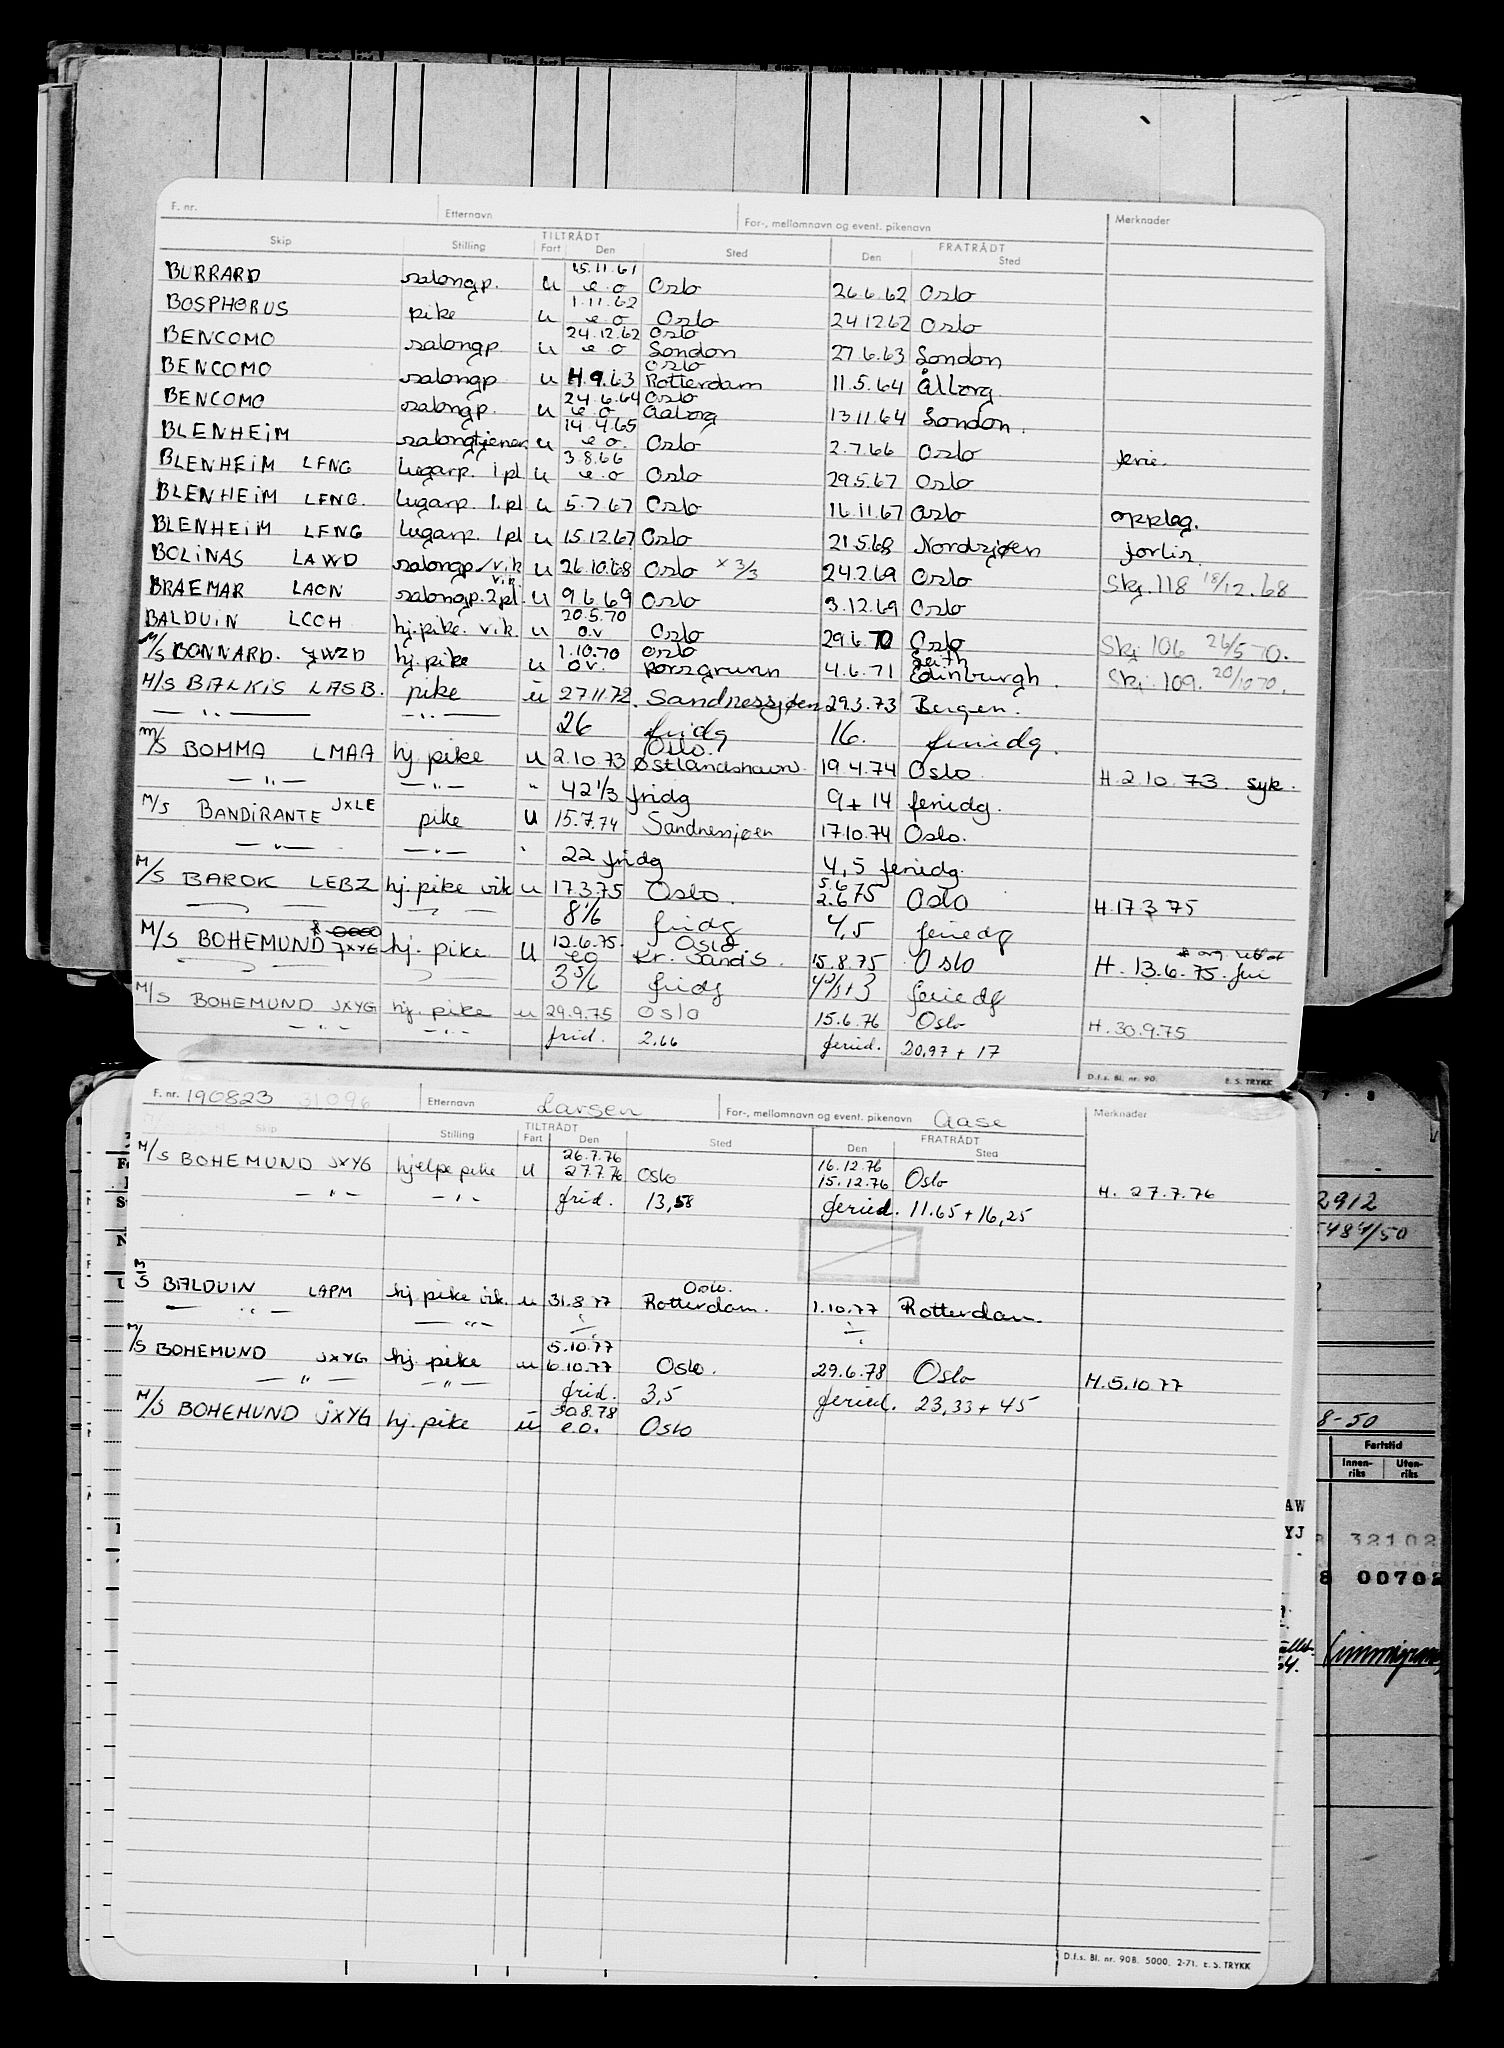 F. nr. Etternavn For-, mellomnavn og event. pikenavn Merknader
Skip Stilling TILTRÅDT Fart Den Sted FRATRÅDT Den Sted
BURRARD salongp. u 15.11.61 e.o Oslo 26.6.62 Oslo
BOSPHORUS pike u 1.11.62 e.o Oslo 24.12.62 Oslo
BENCOMO salongp u 24.12.62 e o Oslo London 27.6.63 London
BENCOMO salongp u 9.63 Oslo Rotterdam 11.5.64 Ålborg.
BENCOMO salongp. u 24.6.64 e.o Oslo Aalborg 13.11.64 London.
BLENHEIM salongtjener u 14.4.65 e o. Oslo 2.7.66 Oslo ferie.
BLENHEIM LFNG lugarp. 1.pl u 3.8.66 e.o Oslo 29.5.67 Oslo
BLENHEIM LFNG. lugarp. 1.pl u 5.7.67 Oslo 16.11.67 Oslo opplag.
BLENHEIM LFNG lugarp. 1pl u 15.12.67 Oslo 21.5.68 Nordsjøen forlis.
BOLINAS LAWD salongp./vik u 26.10.68 Oslo x 3/3 24.2.69 Oslo Skj.118 18/12.68
BRAEMAR LAON salongp.2pl. vik. u 9.6.69 Oslo 3.12.69 Oslo
BALDUIN LCOH hj.pike. vik. u 20.5.70 o.v Oslo 29.6.70 Oslo Skj 106 26/5 70.
M/S BONNARD. JWZD hj.pike u 1.10.70 ov. Oslo Porsgrunn 4.6.71 Leith Edinburgh. Skj. 109. 20/10 70.
M/S BALKIS LASB. pike u 27.11.72. Sandnessjøen 29.3.73 Bergen.
— " — — " — 26 fridg 16. feriedg.
M/S BOMMA LMAA hj pike u 2.10.73 Oslo. Østlandshavn. 19.4.74 Oslo. H.2.10.73. syk.
— " — — " — " 42 1/3 fridg 9 + 14 feriedg.
M/S BANDIRANTE JXLE pike u 15.7.74 Sandnessjøen 17.10.74 Oslo.
— " — — " — " 22 fridg 4,5 feriedg.
M/S BAROK LEBZ hj. pike vik u 17.3.75 Oslo. 5.6 2.6.75 Oslo H.17 3 75
8 1/6 fridg 4,5 feriedg
M/S BOHEMUND JXYG hj. pike u 12.6.75. e o Oslo. Kr. Sand S. 15.8.75 Oslo H. 13.6.75.
3 5/6 fridg feriedg
M/S BOHEMUND JXYG hj. pike u 29.9.75 Oslo 15.6.76 Oslo H.30.9.75
— " — — " — frid. 2,66 feried. 20,97 + 17
D.f.s. Bl. nr. 90. E. S. TRYKK
F. nr. 190823 31096 Etternavn Larsen For-, mellomnavn og event. pikenavn Aase Merknader
Skip Stilling TILTRÅDT Fart Den Sted FRATRÅDT Den Sted
M/S BOHEMUND JXYG hjelpe pike u 26.7.76 27.7.76 Oslo 16.12.76 15.12.76 Oslo H. 27.7.76
— " — — " — frid. 13,58 feried. 11.65 + 16,25
M/S BALDUIN LAPM hj pike vik. u 31.8.77 Oslo. Rotterdam. 1.10.77 Rotterdam.
— " — — " —
M/S BOHEMUND JXYG hj. pike u 5.10.77 6.10.77 Oslo. 29.6.78 Oslo H.5.10.77
— " — — " — frid. 3,5 feried. 23,33 + 45
M/S BOHEMUND JXYG hj. pike u 30.8.78 e.o. Oslo
D.f.s. Bl. nr. 90B. 5000. 2-71. E. S. TRYKK
2912
8-50
Fartstid
Innen-riks Uten-riks
AW
YJ
32102
8 00702